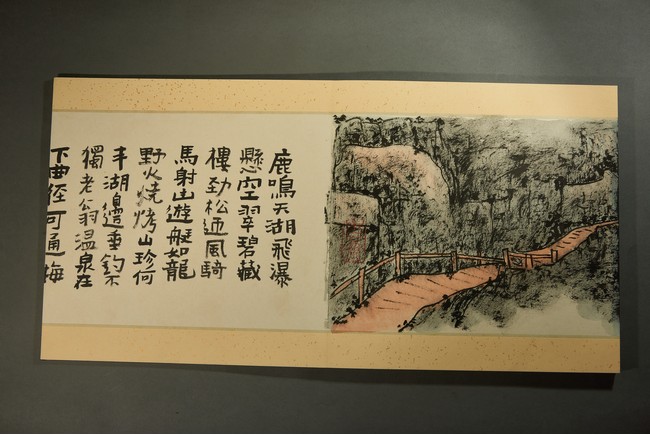 鹿鳴天湖飛瀑
懸空翠碧藏
樓勁松迎風騎
馬射击遊艇如龍
野火燒烤山珍何
丰湖邊垂釣不
獨老翁温泉在
下曲徑可通海